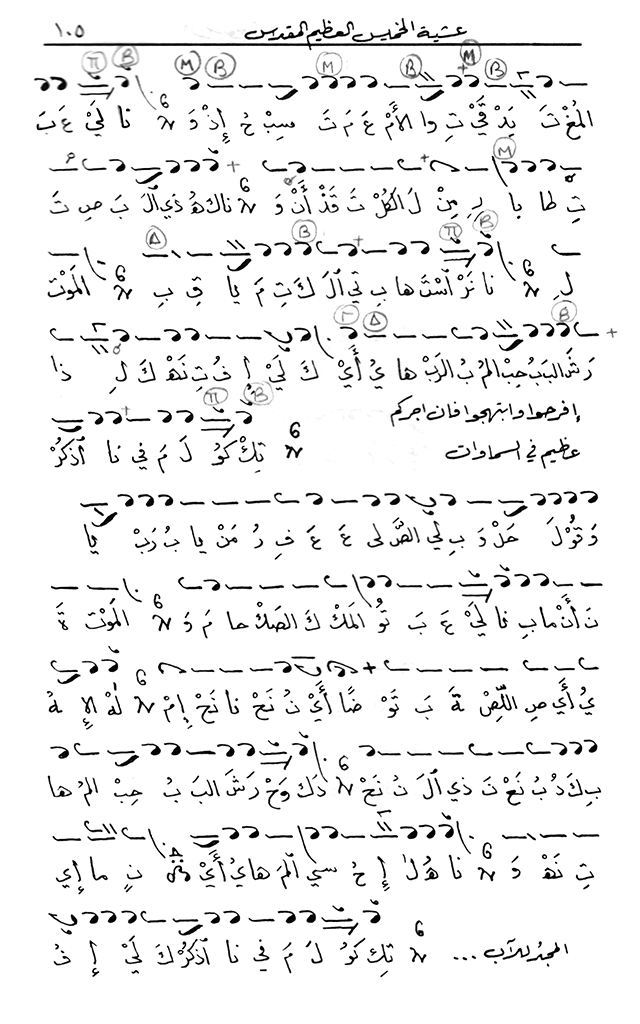 عشية الخميس العظيم المقدس ١٠٥
Π B M B M B M B
المُغْ تَ يَدْ قَيْ تِ وا لأَمْ عَ مَ تَ سبْ حُ إذْ وَ نا لَيْ عَ بَ
M
تِ طا با رِ مِنْ لَ الكُلْ تَ قَذْ أَنْ وَ ناكَ هُ ذي اَلْ بَ صِ تَ
Δ B Π B
لِ نا نَرْ اسْتَ ها بِ تي اَلْ كَ تِ مَ يا قِ بِ المَوْت
Γ Δ B
رَشَ البَ بُ حِبْ المُ بُ الرَبْ ها يُ أَيْ كَ لَيْ إِ فُ تِ نَهْ كَ لِ ذا
Π B
إفرحوا وابتهجوا فان اجركم
عظيم في السماوات تِكْ كو لَ مَ في نا اَذكُرْ
وَ تَوْلَ حَدْ وَ بِ لي الصَّلى عَ عَ فِ رُ مَنْ يا بُ رَبْ يا
نَ أَنْ ما بِ نا لَيْ عَ بَ تو المَكْ كَ الصَكْ حا مَ وَ المَوْتَ ةَ
يُ أَي صِ اللِصْ ةَ بَ تَوْ ضًا أَيْ نُ نَحْ نا نَحْ إِمْ لَهُ الإِ هُ
بِكَ دُ بُ نَعْ نَ ذي اَلْ نُ نَحْ دَكَ وَحْ رَشَ البَ بُ حِبْ المُ ها
تِ نَهْ وَ نا هُلَ إِ حُ سي اَلْمَ ها يُ أَيْ نِ ما إي
المجدُ للآب ... تِك كو لَ مَ في نا اَذكُرْ كَ لَيْ إِ فُ